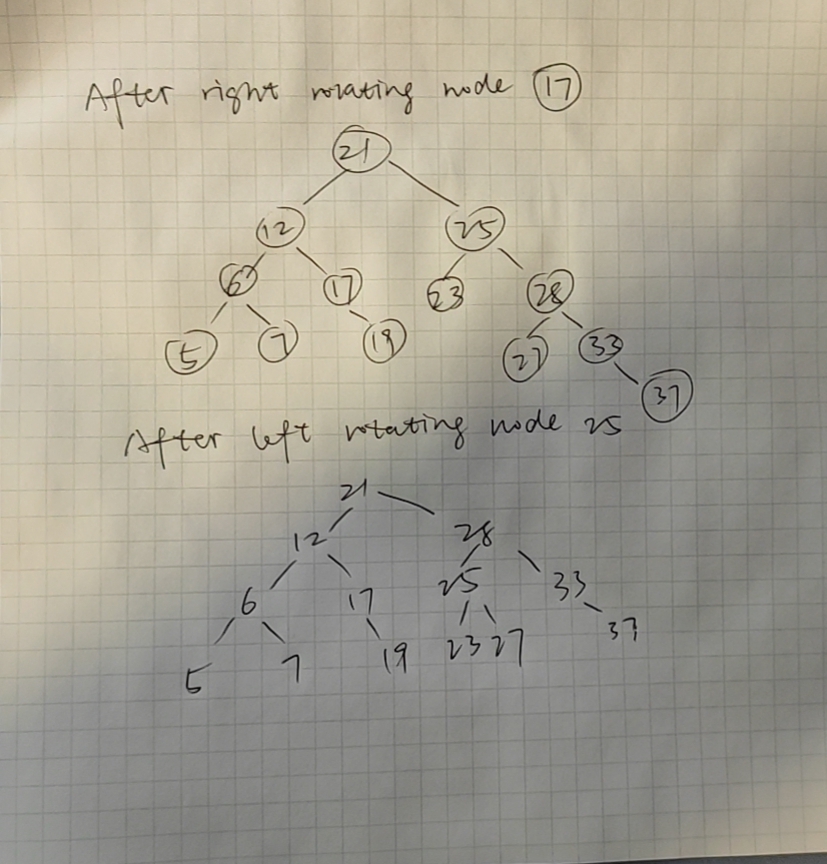 After right rotating node 17
21
12 25
6 17 23 28
5 7 19 27 33
37
After left rotating node 25
21
12 28
6 17 25 33
5 7 19 23 27 37